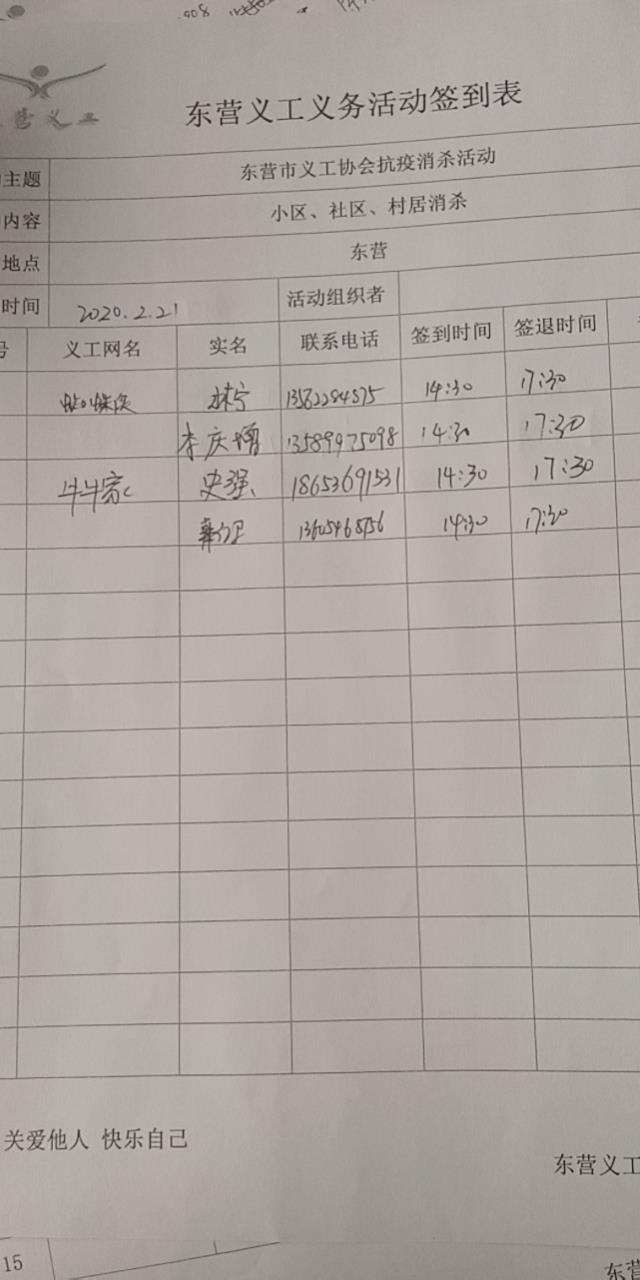 908
东营义工
东营义工义务活动签到表
主题 东营市义工协会抗疫消杀活动
内容 小区、社区、村居消杀
地点 东营
时间 2020.2.21 活动组织者
号 义工网名 实名 联系电话 签到时间 签退时间
林宁 13562284875 14:30 17:30
李庆增 13589975098 14:30 17:30
牛牛 史强 18653691531 14:30 17:30
13605468756 14:30 17:30
关爱他人 快乐自己
东营义工
15
东营